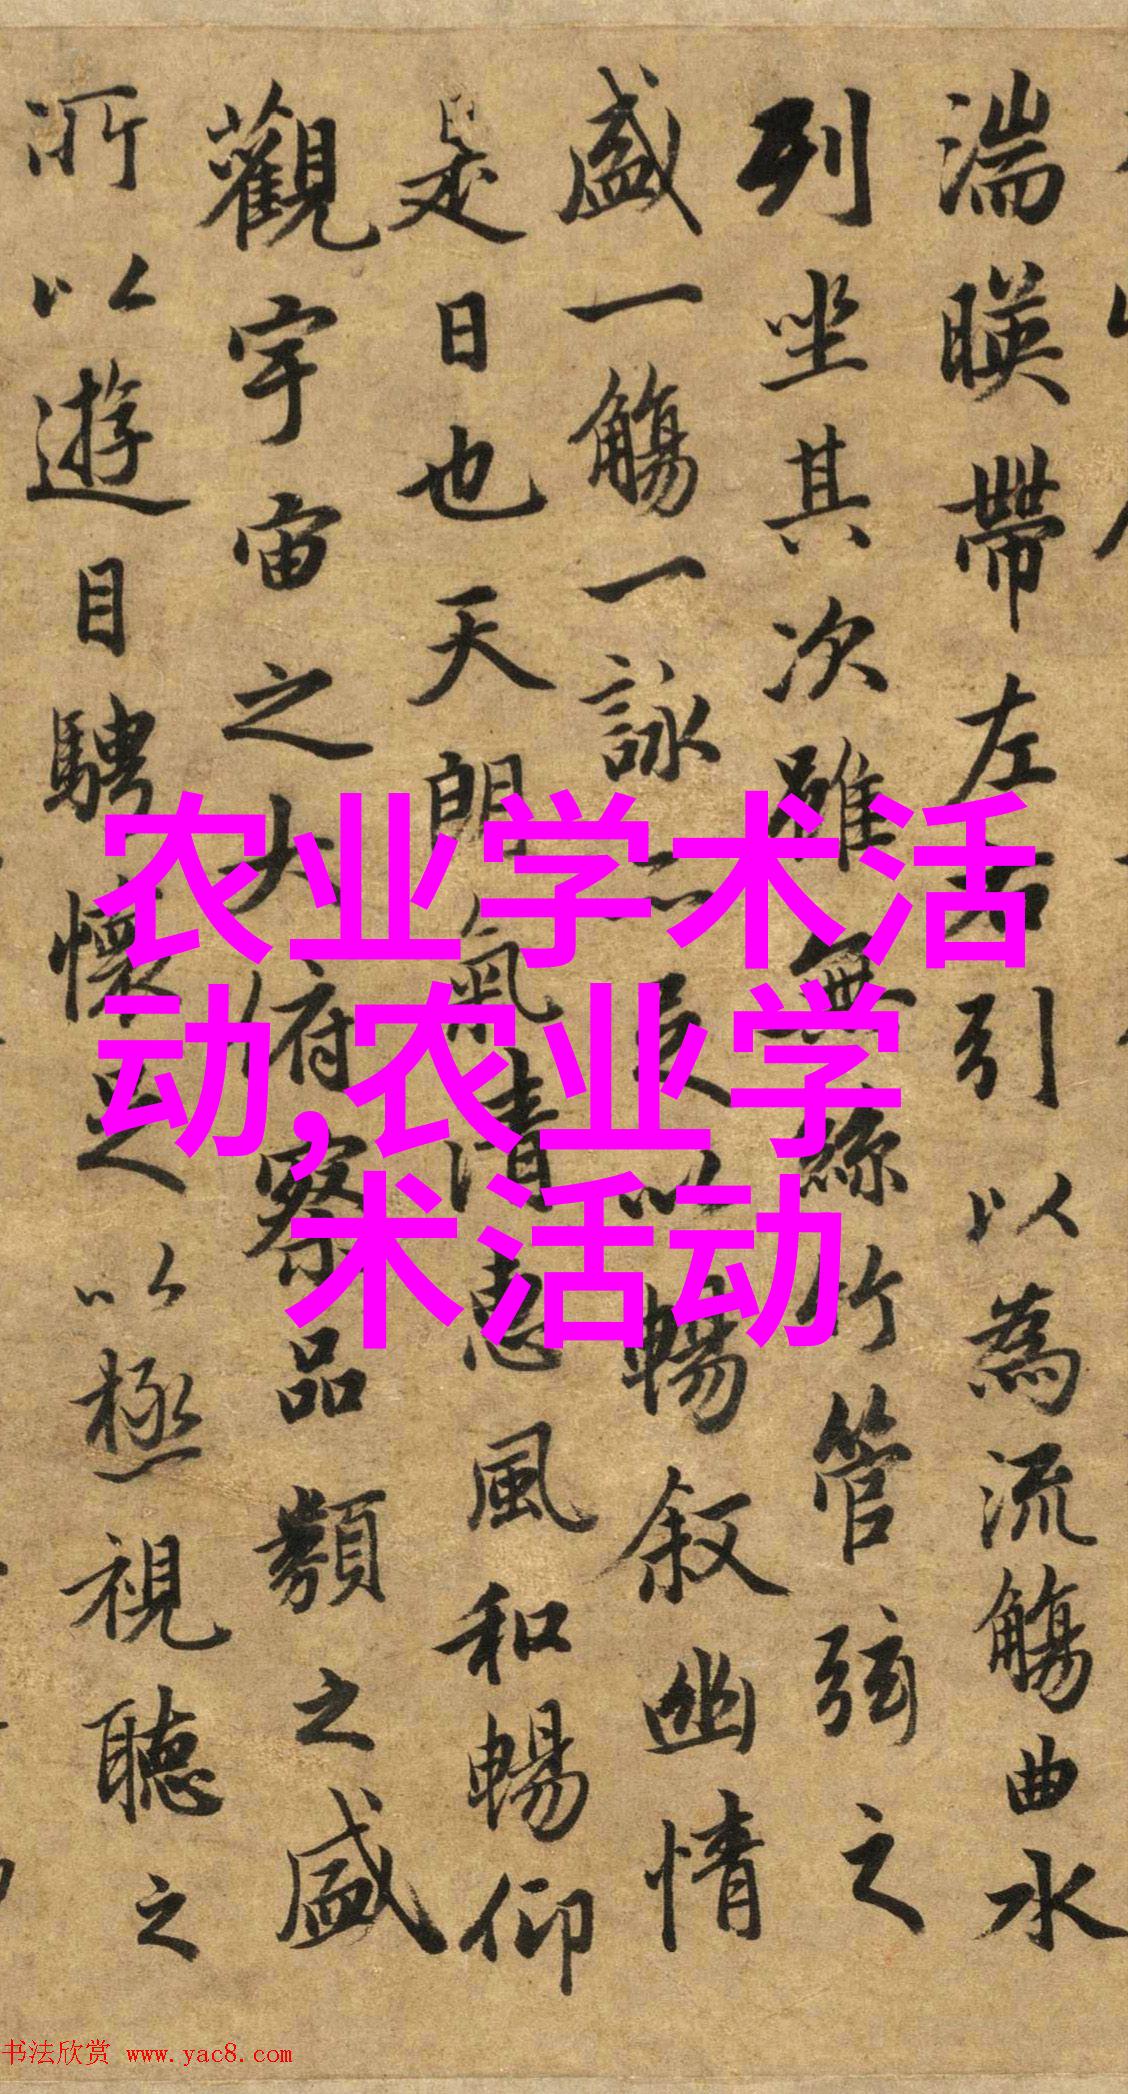 湍暎帶左右引以為流觴曲水
列坐其次雖無絲竹管弦之
盛一觴一詠亦足以暢叙幽情
是日也天朗氣清惠風和暢仰
觀宇宙之大府察品類之盛
所以遊目騁懷足以極視聽之
农业学术活
动,农业学
术活动
书法欣赏 www.yac8.com